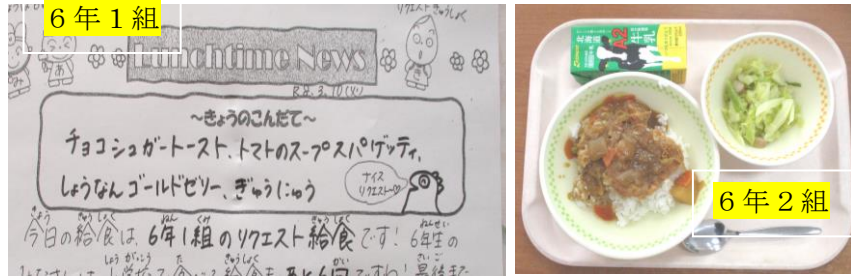 ６年１組
リクエストきゅうしょく
Lunchtime News
R8.3.10(火)
～きょうのこんだて～
チョコシュガートースト、トマトのスープスパゲッティ、
しょうなんゴールドゼリー、ぎゅうにゅう
ナイス
リクエスト♡
今日の給食は、6年1組のリクエスト給食です！6年生の
北海道
A2
牛乳
６年２組